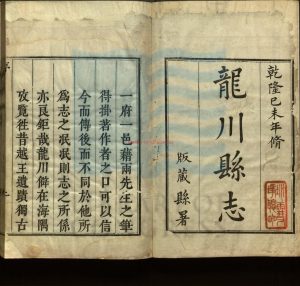 乾隆己未年脩
龍川縣志
版藏縣署
一府一邑藉兩先生之筆
得掛著作者之口可以信
今而傳後而不同於他所
為志之泯泯則志之所係
亦良鉅哉龍川僻在海隅
攷覽往昔越王遺蹟獨古